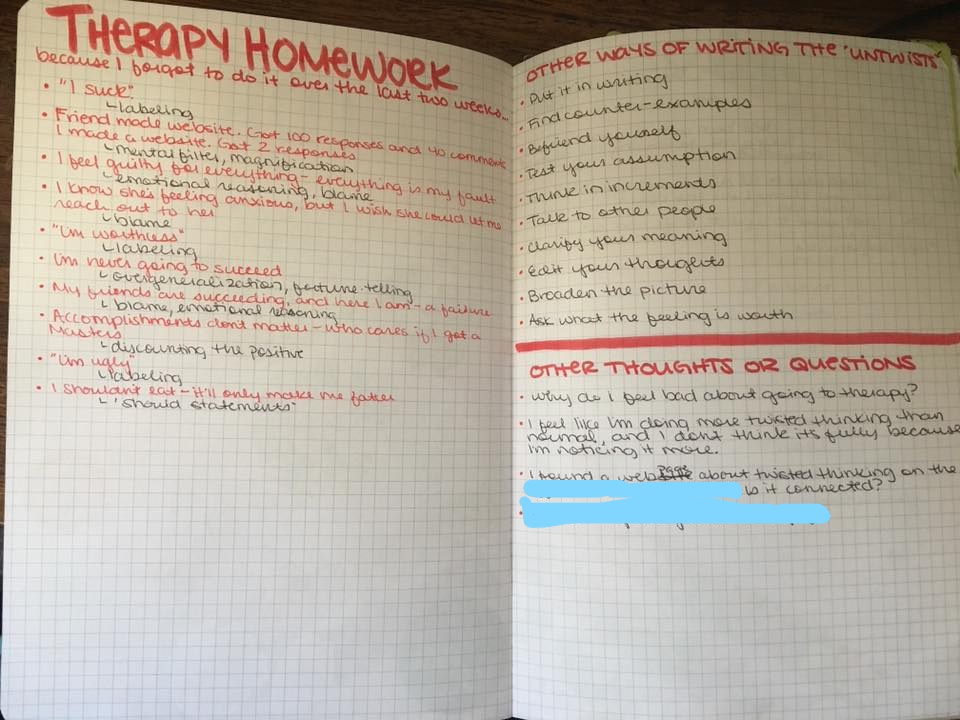 THERAPY HOMEWORK
because I forgot to do it over the last two weeks...
• "I suck"
↳labeling
• Friend made website. Got 100 responses and 40 comments
I made a website. Got 2 responses
↳mental filter, magnification
• I feel guilty for everything - everything is my fault
↳emotional reasoning, blame
• I know she's feeling anxious, but I wish she could let me
reach out to her
↳blame
• "I'm worthless"
↳labeling
• I'm never going to succeed
↳overgeneralization, fortune-telling
• My friends are succeeding, and here I am - a failure
↳blame, emotional reasoning
• Accomplishments don't matter - who cares if I got a
Masters
↳discounting the positive
• "I'm ugly"
↳labeling
• I shouldn't eat - it'll only make me fatter
↳"should statements"
OTHER WAYS OF WRITING THE "UNTWISTS"
• Put it in writing
• Find counter-examples
• Befriend yourself
• Test your assumption
• Think in increments
• Talk to other people
• Clarify your meaning
• Edit your thoughts
• Broaden the picture
• Ask what the feeling is worth
OTHER THOUGHTS OR QUESTIONS
• Why do I feel bad about going to therapy?
• I feel like I'm doing more twisted thinking than
normal, and I don't think it's fully because
I'm noticing it more.
• I found a web page about twisted thinking on the
Is it connected?